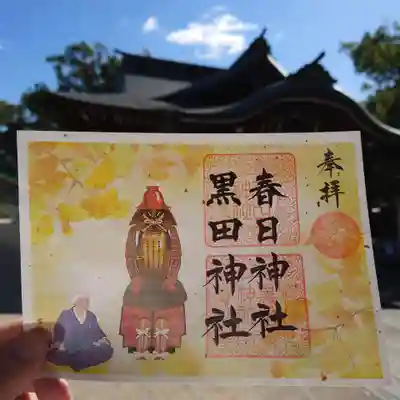 奉拝
春日神社
黒田神社